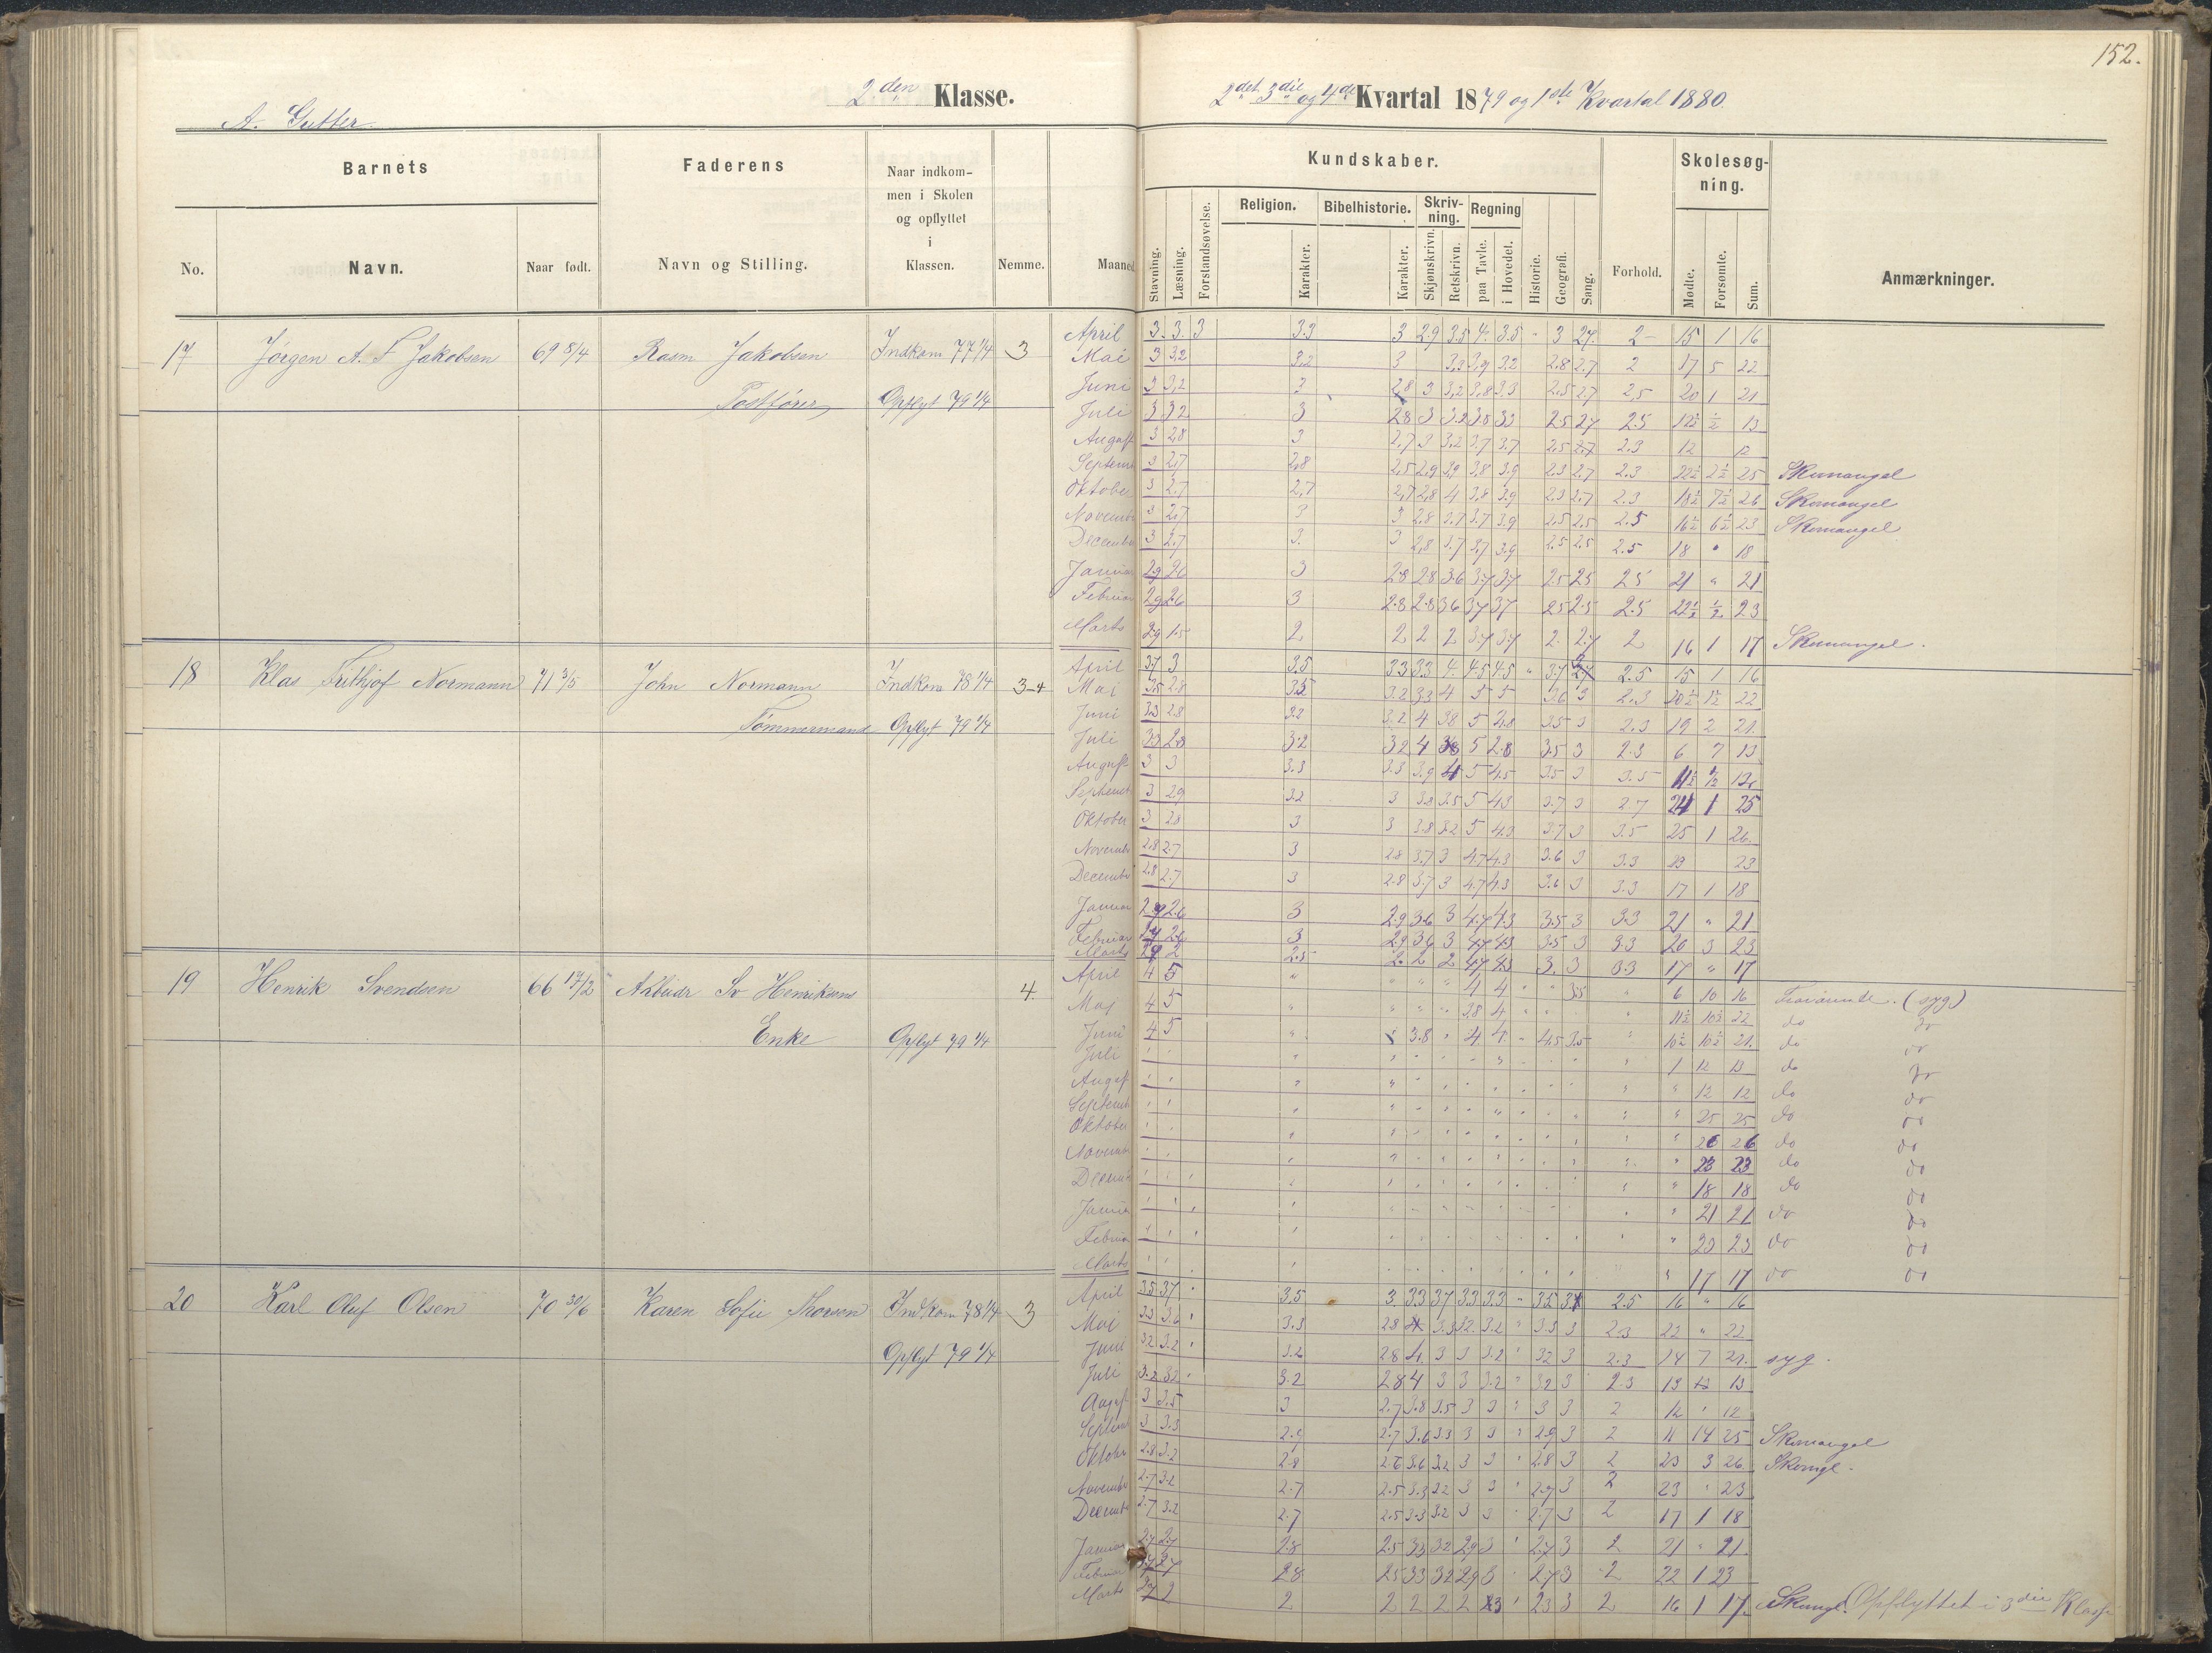 152.
2den Klasse.
2det 3die og 4de Kvartal 1879 og 1ste Kvartal 1880.
A. Gutter.
Barnets
Faderens
Naar indkom-
men i Skolen
og opflyttet
i
Klassen.
No.
Navn.
Naar født.
Navn og Stilling.
Nemme.
Maaned
Kundskaber.
Stavning.
Læsning.
Forstandsøvelse.
Religion.
Karakter.
Bibelhistorie.
Karakter.
Skriv-
ning.
Skjønskrivn.
Retskrivn.
Regning
paa Tavle.
i Hovedet.
Historie.
Geografi.
Sang.
Forhold.
Skolesøg-
ning.
Mødte.
Forsømte.
Sum.
Anmærkninger.
17 Jørgen A. F Jakobsen 69 8/4 Rasm Jakobsen Indkom 77 1/4 3
Postfører Opflyt 79 1/4
April 3. 3. 3 3.3 3 2.9 3.5 4. 3.5 " 3 2.7. 2- 15 1 16
Mai 3 3,2 3,2 3 3,2 3,9 3,2 2.8 2.7 2 17 5 22
Juni 3 3,2 3 2,8 3 3,2 3,8 3,3 2,5 2,7 2,5 20 1 21
Juli 3 3.2 3 2.8 3 3.2 3.8 3.3 2.5 2.7 2.5 12½ ½ 13
August 3 2,8 3 2,7 3 3,2 3.7 3.7 2.5 2.7 2.3 12 12
Septemb 3 2,7 2,8 2,5 2,9 3,9 3.8 3.9 2.3 2.7 2.3 22½ 2½ 25 Skomangel
Oktober 3 2.7 2,7 2,7 2,8 4 3,8 3.9 2.3 2.7 2.3 18½ 7½ 26 Skomangel
Novemb 3 2,7 3 3 2.8 3.7 3.7 3.9 2.5 2.5 2.5 16½ 6½ 23 Skomangel
Decemb 3 2.7 3. 3 2,8 3.7 3,7 3.9 2.5 2.5 2.5 18 " 18
Januar 2.9 2.6 3 2.8 2.8 3.6 3.7 3.7 2.5 2.5 2.5 21 " 21
Februar 2.9 2.6 3 2.8 2.8 3.6 3.7 3.7 2.5 2.5 2.5 22½ ½ 23
Marts 2.9 1.5 2 2 2 2 3.7 3.7 2. 2.7 2 16 1 17 Skomangel.
18 Klas Frithjof Normann 71 3/5 John Normann Indkom 78 1/4 3-4
Tømmermand Opflyt 79 1/4
April 3.7 3 3.5 3.3 3.3 4. 4.5 4.5 " 3.7 2.5 15 1 16
Mai 3.5 2.8 3.5 3.2 3.3 4 5 5 3.6 3 2.3 20½ 1½ 22
Juni 3.3 2.8 3.2 3.2 4 3.8 5 2.8 3.5 3 2.3 19 2 21.
Juli 3.3 2.8 3.2 3.2 4 3.8 5 2.8 3.5 3 2.3 6 7 13
August 3 3 3.3 3.3 3.9 4 5 4.5 3.5 3 3.5 11½ ½ 12
Septemb 3 2.9 3.2 3 3.8 3.5 5 4.3 3.7 3 2.7 24 1 25
Oktober 3 2.8 3 3 3.8 3.2 5 4.3 3.7 3 3.5 25 1 26.
Novemb 2.8 2.7 3 2.8 3.7 3 4.7 4.3 3.6 3 3.3 23 23
Decemb 2.8 2.7 3 2.8 3.7 3 4.7 4.3 3.6 3 3.3 17 1 18
Januar 2.9 2.6 3 2.9 3.6 3 4.7 4.3 3.5 3 3.3 21 " 21
Februar 2.9 2.6 3 2.9 3.6 3 4.7 4.3 3.5 3 3.3 20 3 23
Marts 2.9 2 2.5 2. 2 2 4.7 4.3 3. 3 3.3 17 " 17
19 Henrik Svendsen 66 17/2 Arbeidr Sv Henriksens 4.
Enke Opflyt 79 1/4
April 4 5 " " " " 4 4 " " 3.5 " 6 10 16 (syg)
Maj 4 5 " " " " 3.8 4 " " 11½ 10½ 22 do do
Juni 4 5 " 3.8 " 4 4. " 4.5 3.5 " 10½ 10½ 21. do do
Juli 1 12 13 do do
August " 12 12 do do
Septemb " 25 25 do do
Oktober " 26 26 do do
Novemb " 23 23 do do
Decemb " 18 18 do do
Januar " 21 21 do do
Februar " 23 23 do do
Marts " 17 17 do do
20 Karl Oluf Olsen 70 30/6 Karen Sofie Thorsen Indkom 78 1/4 3
Opflyt 79 1/4
April 3.5 3.7 3.5 3. 3.3 3.7 3.3 3.3 " 3.5 2.5 16 " 16
Mai 3.3 3.6 3.3 2.8 4 3.3 3.2. 3.2 " 3.3 3 2.3 22 " 22
Juni 3.2 3.2 3.2 2.8 4. 3 3 3.2 3.2 3 2.3 14 7 21. syg.
Juli 3.2 3.2 3.2 2.8 4 3 3 3.2 " 3.2 3 2.3 13 13
August 3 3.5 3 2.7 3.8 3.5 3 3 3 3 2 12 12
Septemb 3 3.3 2.9 2.7 3.6 3.3 3 3 2.9 3 2 11 14 25 Skomangel
Oktober 2.8 3.2 2.8 2.6 3.6 3.2 3 3 2.8 3 2 23 3 26 Skomgl.
Novemb 2.7 3.2 2.7 2.5 3.3 3.2 3 3 2.7 3 2 23 23
Decemb 2.7 3.2 2.7 2.5 3.3 3.2 3 3 2.7 3 2 17 1 18
Januar 2.7 2.7 2.8 2.5 3.3 3.2 2.9 3 2.7 3 2 21 " 21.
Februar 2.7 2.7 2.8 2.5 3.3 3.2 2.9 3 2.7 3 2 22 1 23
Marts 2.7 2 2 2 2 2 2 2.3 3 2 16 1 17. Skomgl. Opflyttet i 3die Klasse